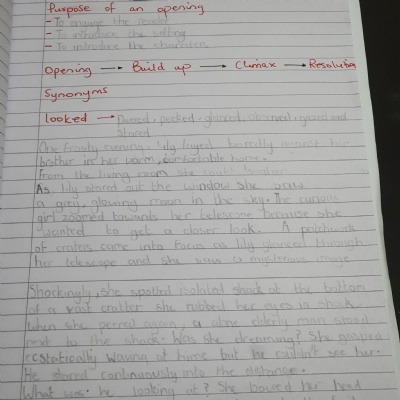 Purpose of an opening
- To engage the reader
- To introduce the setting
- To introduce the characters
Opening → Build up → Climax → Resolution
Synonyms
looked → peeked, glanced, observed, gazed and
stared
One frosty evening, lily against her
brother in her warm, comfortable home.
From the living room she could
As lily stared out the window she saw
a grey, glowing moon in the sky. The curious
girl zoomed towards her telescope because she
wanted to get a closer look. A patchwork
of craters came into focus as lily glanced through
her telescope and she saw a mysterious image
Shockingly, she spotted isolated shack at the bottom
of a vast crater she rubbed her eyes in shock
When she peered again, a alone elderly man stood
next to the shack. Was she dreaming? She gasped
ecstatically waving at hime but he couldn't see her.
He stared continuously into the distance.
What was he looking at? She bowed her head